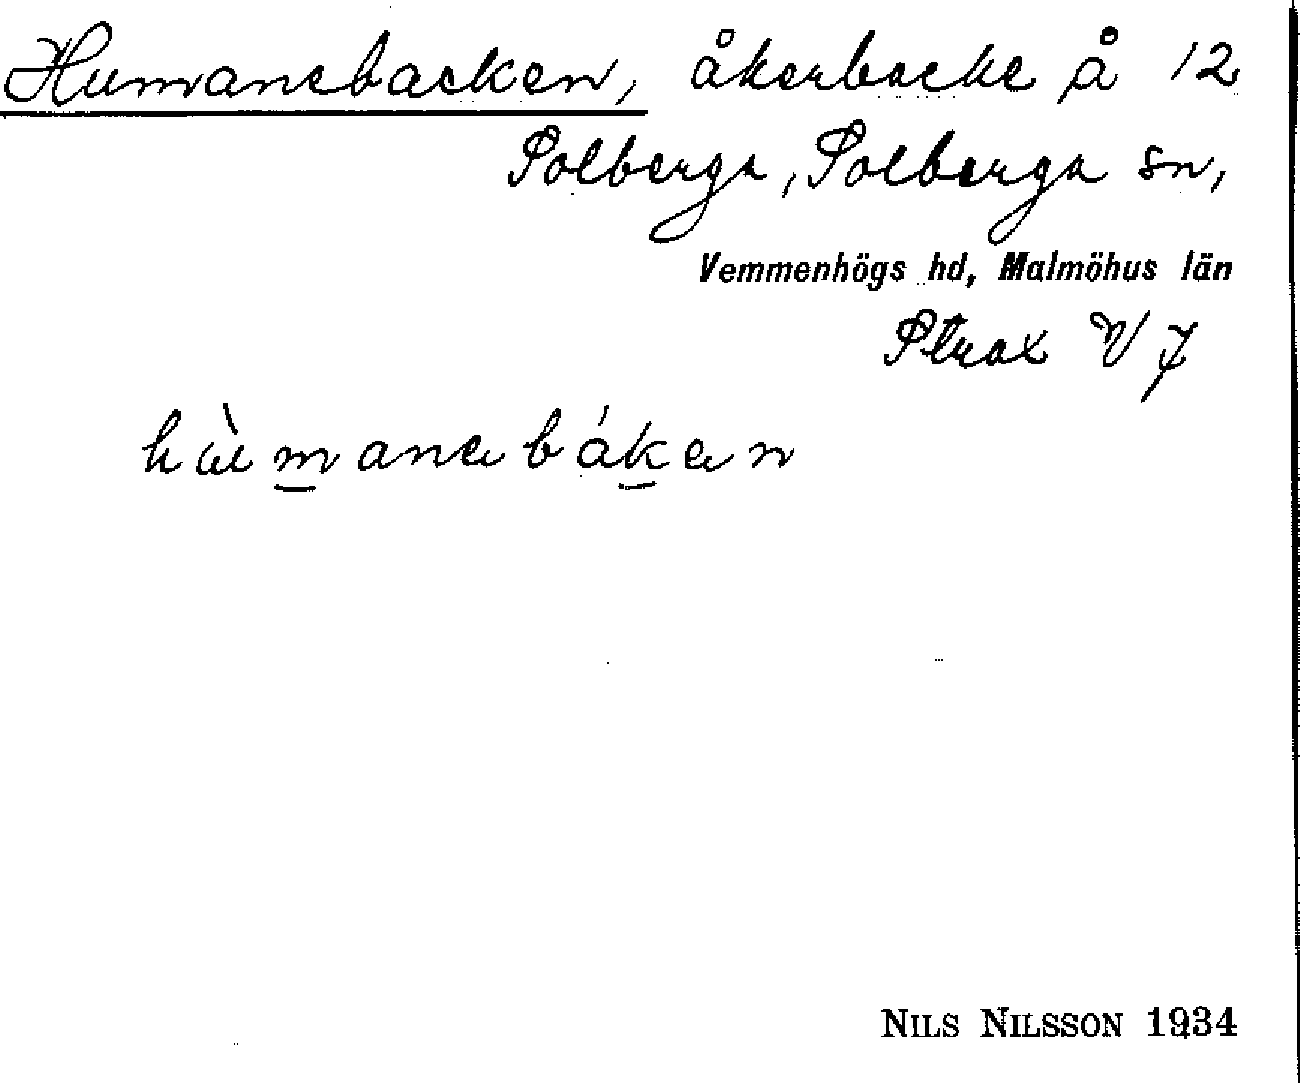 Humanebacken, åkerbacke å 12
Solberga, Solberga sn,
Vemmenhögs hd, Malmöhus län
Strax V/ 7
hùmanabákan
NILS NILSSON 1934